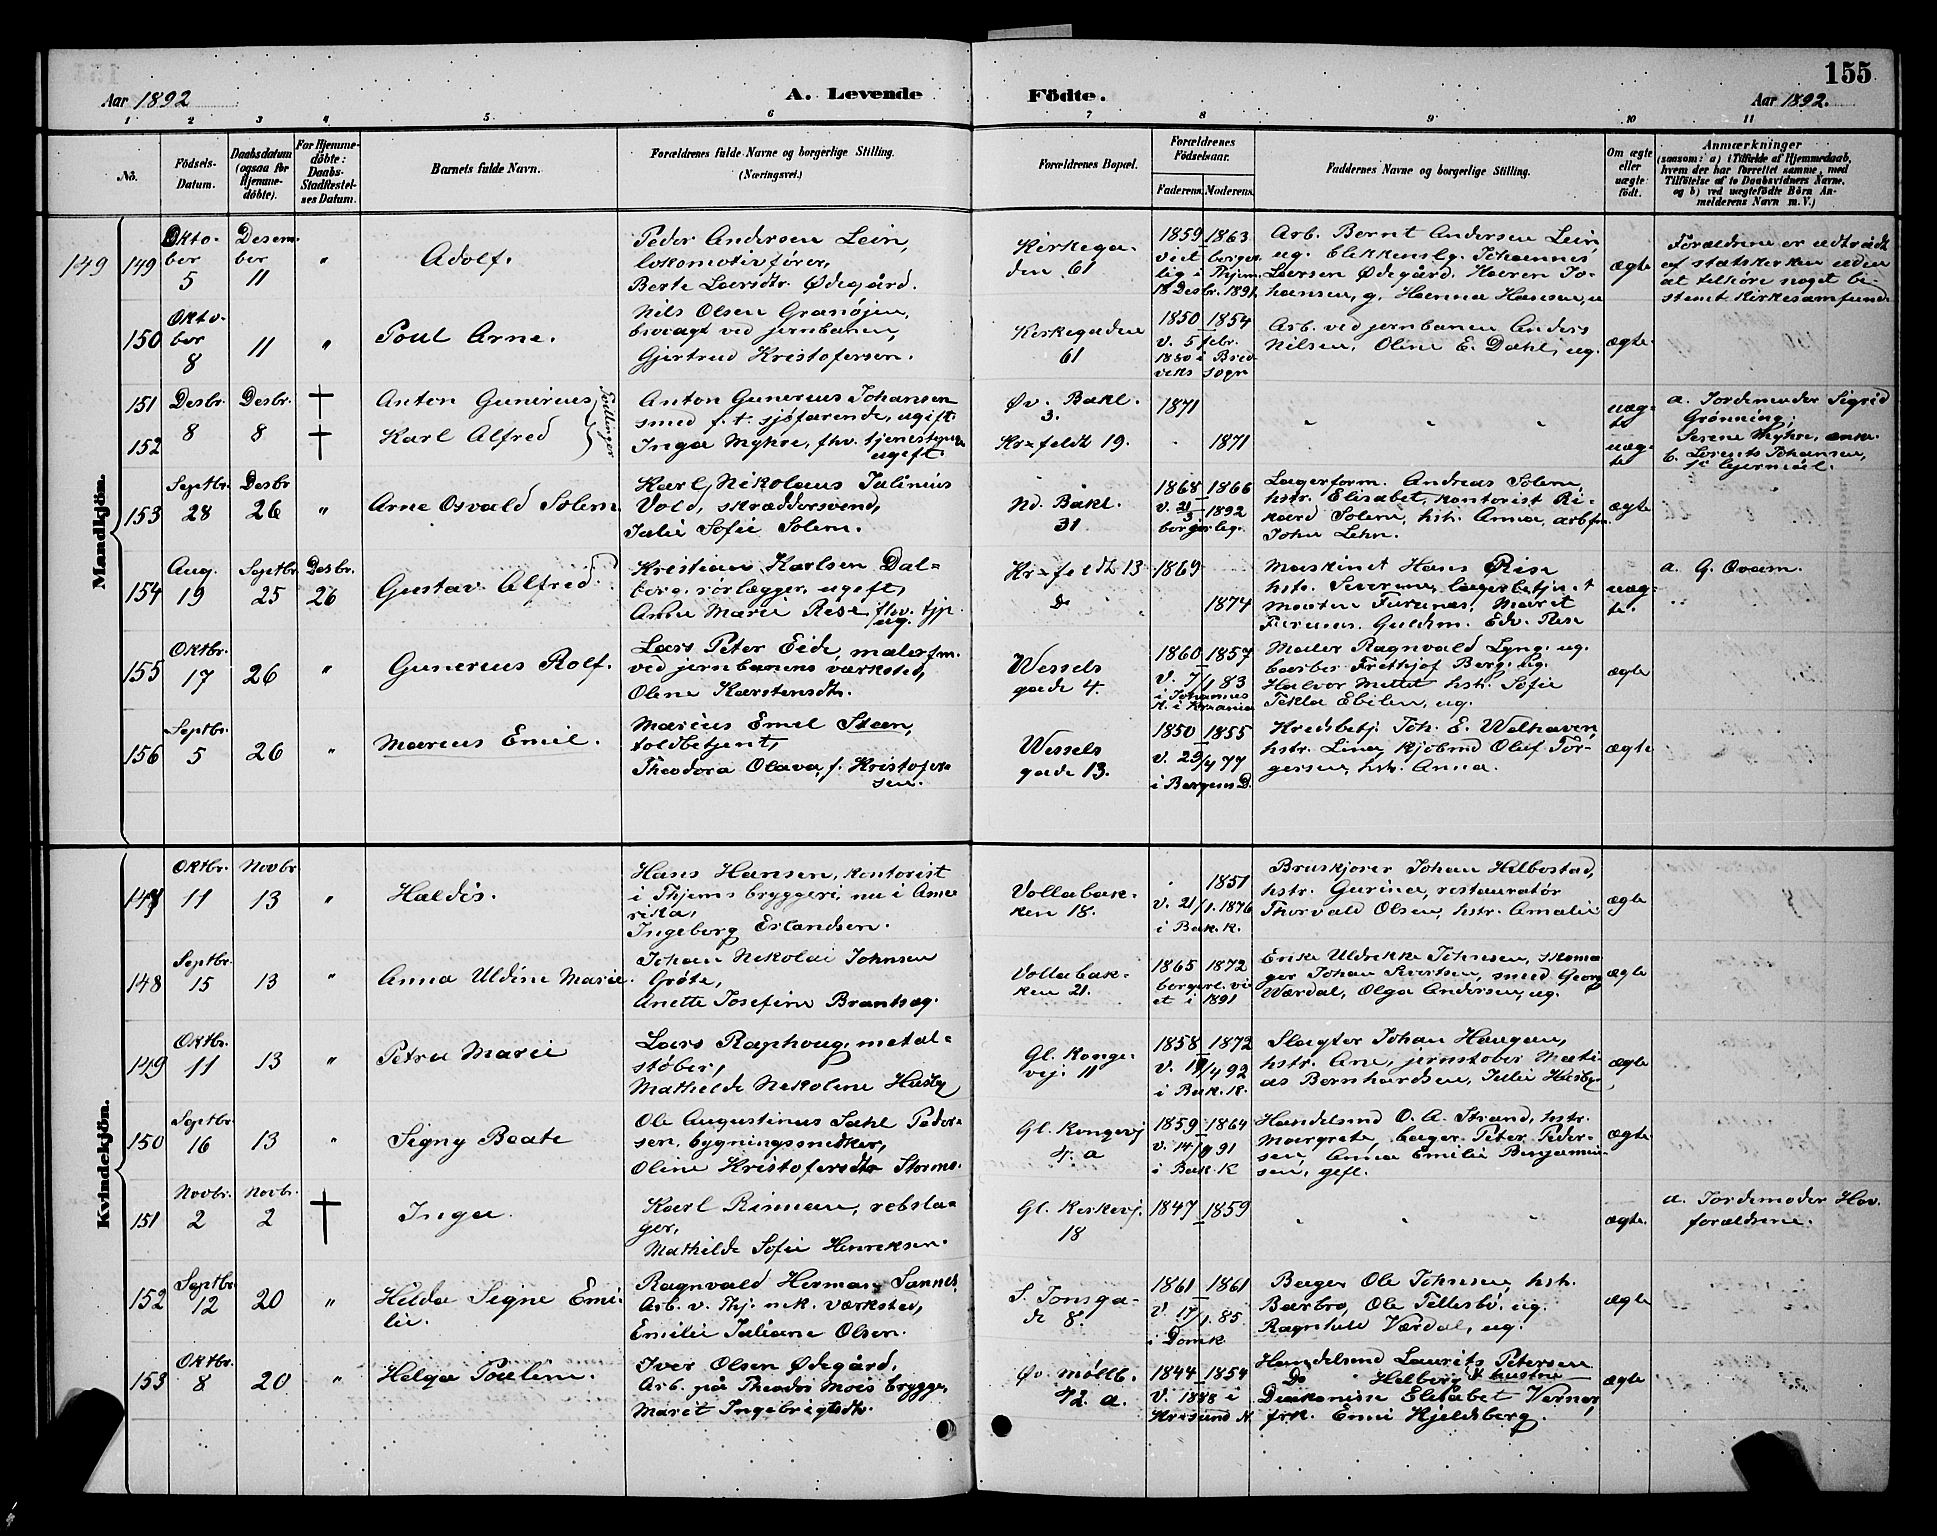 155
Aar 1892
A. Levende
Födte.
Aar 1892.
1 2 3 4 5 6 7 8 9 10 11
No.
Födsels-
Datum.
Daabsdatum
(ogsaa for
Hjemme-
döbte).
For Hjemme-
döbte:
Daabs-
Stadfæstel-
ses Datum.
Barnets fulde Navn.
Forældrenes fulde Navne og borgerlige Stilling.
(Næringsvei.)
Forældrenes Bopæl.
Forældrenes
Födselsaar.
Faderens. Moderens.
Faddernes Navne og borgerlige Stilling.
Om ægte
eller
uægte
födt.
Anmærkninger
(saasom: a) i Tilfælde af Hjemmedaab,
hvem der har forrettet samme, med
Tilföielse af to Daabsvidners Navne,
og b) ved uægtefödte Börn An-
melderens Navn m. V.)
Mandkjön.
149 149
Okto-
ber
5
Desem-
ber
11
"
Adolf.
Peder Andersen Lein,
lokomotivfører,
Berte Larsdtr Ødegård.
Kirkega-
den 61
1859 1863
viet borger-
lig i Thjem
18 Desbr. 1891.
Arb. Bernt Andersen Lein
ug. blikkenslg. Johannes
Larsen Ødegård. Maren Jo-
hansen, g. Hanna Hansen, u
ægte
Forældrene er udtrådt
af statskirken uden
at tilhøre noget be-
stemt kirkesamfund
150
Oktо-
ber
8
11
"
Poul Arne.
Nils Olsen Grasøjen,
brovagt ved jernbanen,
Gjertrud Kristofersen.
Kirkegaden
61
1850 1854
v. 5 febr.
1880 i Bred
veks sogn
Arb. ved jernbanen Anders
Nilsen, Oline E. Dahl, ug.
ægte.
151
152
Desbr.
8
Desbr.
8
†
†
Anton Gunerius
Karl Alfred
Tvillinger
Anton Gunerius Johansen
smed f. t. sjøfarende, ugift
Inga Myhre, fhv. tjenestepige
ugift.
Øv. Bakl.
3.
Kr-feldt 19.
1871
1871
uæg-
te
uæg-
te
a. Jordemoder Sigrid
Grønning;
Serine Myhre, enke.
b. Lorents Johansen,
153
Septbr.
28
Desbr
26
"
Arne Osvald Solem
Karl Nikolaus Julinius
Vold, skræddersvend,
Julie Sofie Solem.
Nd. Bakl.
31
1868 1866
v. 21/3 1892
borgerlig.
Lagerform. Andreas Solem,
hstr. Elisabet, kontorist Ri-
kard Solem, hstr. Anna, arbfm
John Lehn.
ægte
154
Aug.
19
Septbr.
25
Desbr.
26
Gustav Alfred
Kristian Karlsen Dal-
berg, rørlægger, ugift,
Anne Marie Rise fhv. tjp.
ug.
Kr-feldt 13
do
1869
1874
Maskinst Hans Rise
hstr. Severine, lagerbetjent
Morten Furunes, Marit
Furunes. Guldsm. Edv. Rise
uæg-
te.
a. G. Qvam.
155
Oktbr.
17
26
"
Gunerius Rolf.
Lars Peter Eide, malerfm.
ved jernbanens værksted,
Oline Karstensdtr.
Wessels
gade 4.
1860 1857
v. 7/1 83
i Johannes
k. i Krania
Maler Ragnvald Lyng. ug.
barber Frithjof Berg. ug.
Halvor Mettet hstr. Sofie
Tekla Ebilen, ug.
ægte
156
Septbr.
5
26
"
Marius Emil.
Marius Emil Steen,
toldbetjent,
Theodora Olava, f. Kristofer-
sen.
Wessels
gade 13.
1850 1855
v. 29/4 77
i Bergens D.
Kredsbetj. Joh. E. Welhaven,
hstr. Lina, kjøbmd Oluf Tor-
gersen, hstr. Anna.
ægte
Kvindekjön.
147
Oktbr.
11
Novbr
13
"
Haldis.
Hans Hansen, kontorist
i Thjems bryggeri, nu i Ame
rika,
Ingeborg Erlandsen.
Vollabak-
ken 18.
1851
v. 21/1. 1876
i Bak. k.
Bruskjører Johan Helbostad,
hstr. Gurina, restauratør
Thorvald Olsen, hstr. Amalie
ægte
148
Septbr.
15
13
"
Anna Uldine Marie.
Johan Nikolai Johnsen
Grøte,
Anette Josefine Brantsæg.
Vollabak-
ken 21.
1865 1872
borgerl. vi-
et i 1891
Erike Uldrikke Johnsen, skoma
ger Johan Sivertsen, smed Georg
Værdal, Olga Andersen, ug.
ægte
149
Oktbr.
11
13
"
Petra Marie
Lars Raphoug, metal-
støber,
Mathilde Nikoline Husby
Gl. Konge-
vej. 11
1858 1872
v. 19/4 92
i Bak. k.
Slagter Johan Haugan,
hstr. Ane, jernstøber Mati-
as Bernhardsen, Julie Husby
ægte
150
Septbr.
16
13
"
Signy Beate
Ole Augustinus Sahl Peder-
sen, bygningssnedker,
Oline Kristofersdtr Stormo.
Gl. Kongevj
4. a
1859 1864
v. 14/9 91
i Bak. K
Handelsmd O. A. Strand, hstr.
Margrete, bager Peter Peder-
sen, Anna Emilie Benjamin-
sen, gift.
ægte.
151
Novbr.
2
Novbr.
2
†
Inga.
Karl Rinnan, rebsla-
ger,
Mathilde Sofie Henriksen.
Gl. Kirkevj.
18
1847 1859
ægte.
a. Jordemoder Hov.
forældrene.
152
Septbr
12
20
"
Hilda Signe Emi-
lie.
Ragnvald Herman Sannes
Arb. v. Thj. mek. værksted,
Emilie Juliane Olsen.
S. Jonsga-
de 8
1861 1861
v. 17/1. 85
i Domk
Bager Ole Johnsen, hstr.
Barbro, Ole Tellesbø. ug.
Ragnhild Værdal, ug.
ægte
153
Oktbr.
8
20
"
Helga Pauline.
Iver Olsen Ødegård,
Arb. på Theodor Mois brygge,
Marit Ingebrigtsdtr.
Øv. møllb.
42. a.
1844 1854
v. 1888 i
Krisund N.
Handelsmd Laurits Petersen
Do Helberg & hustru
Diakonisse Elisabet Verner,
frk. Enni Hjeldsberg.
ægte